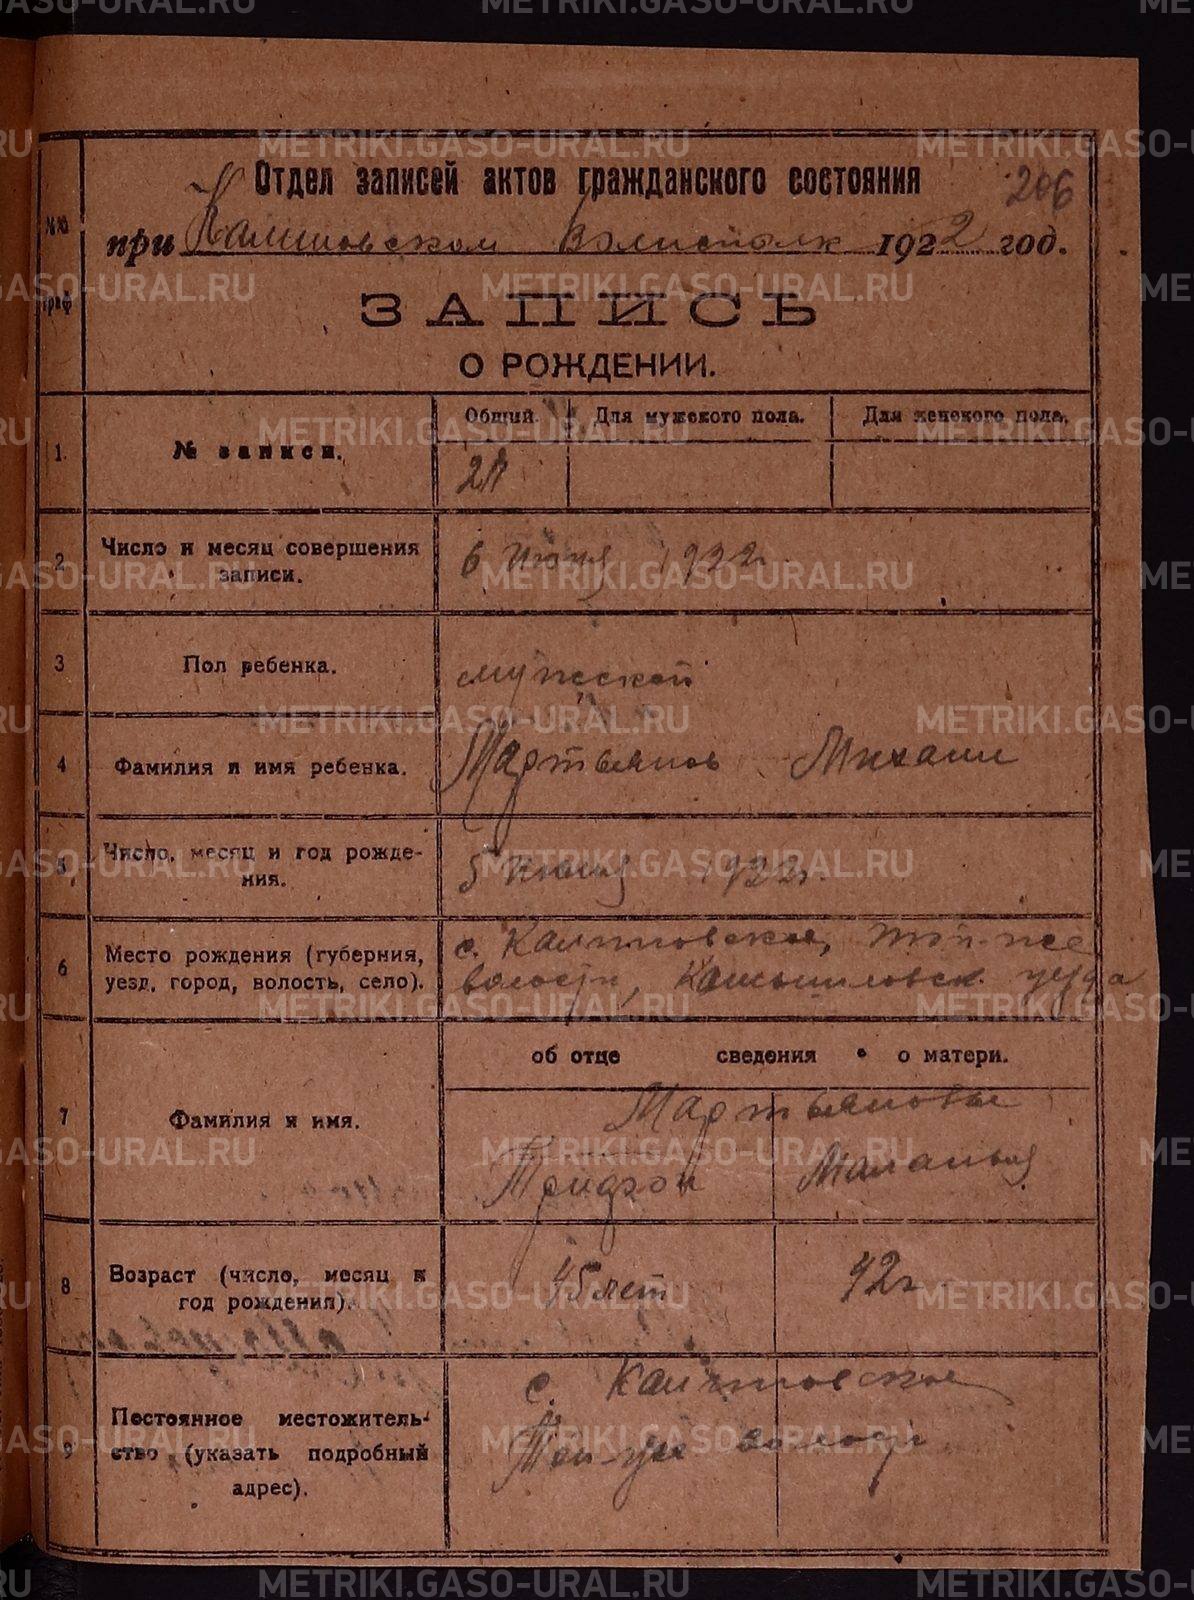 Отдел записей актов гражданского состояния 206
при Калиновском Волисполк 1922 год.
№№ граф
ЗАПИСЬ
О РОЖДЕНИИ.
Общий. Для мужского пола. Для женского пола.
1. № записи.
2 Число и месяц совершения записи. 6 Июня 1922г.
3 Пол ребенка. мужской
4 Фамилия и имя ребенка. Мартьянов Михаил
5 Число, месяц и год рождения. 5 Июня 1922г.
6 Место рождения (губерния, с. Калиновское, той-же
уезд, город, волость, село). волости, Камышловск. уезда
об отце сведения о матери.
Мартьяновы
7 Фамилия и имя. Трифон Маланья
8 Возраст (число, месяц и год рождения). 45 лет 42г
с. Калиновское
9 Постоянное местожительство (указать подробный адрес). Той-же волости
METRIKI.GASO-URAL.RU